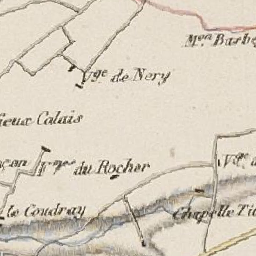 M.on Barbe
V.ge de Nery
ieux Calais
çon
F.me du Rocher
V.ge d
le Coudray
Chapelle Ti